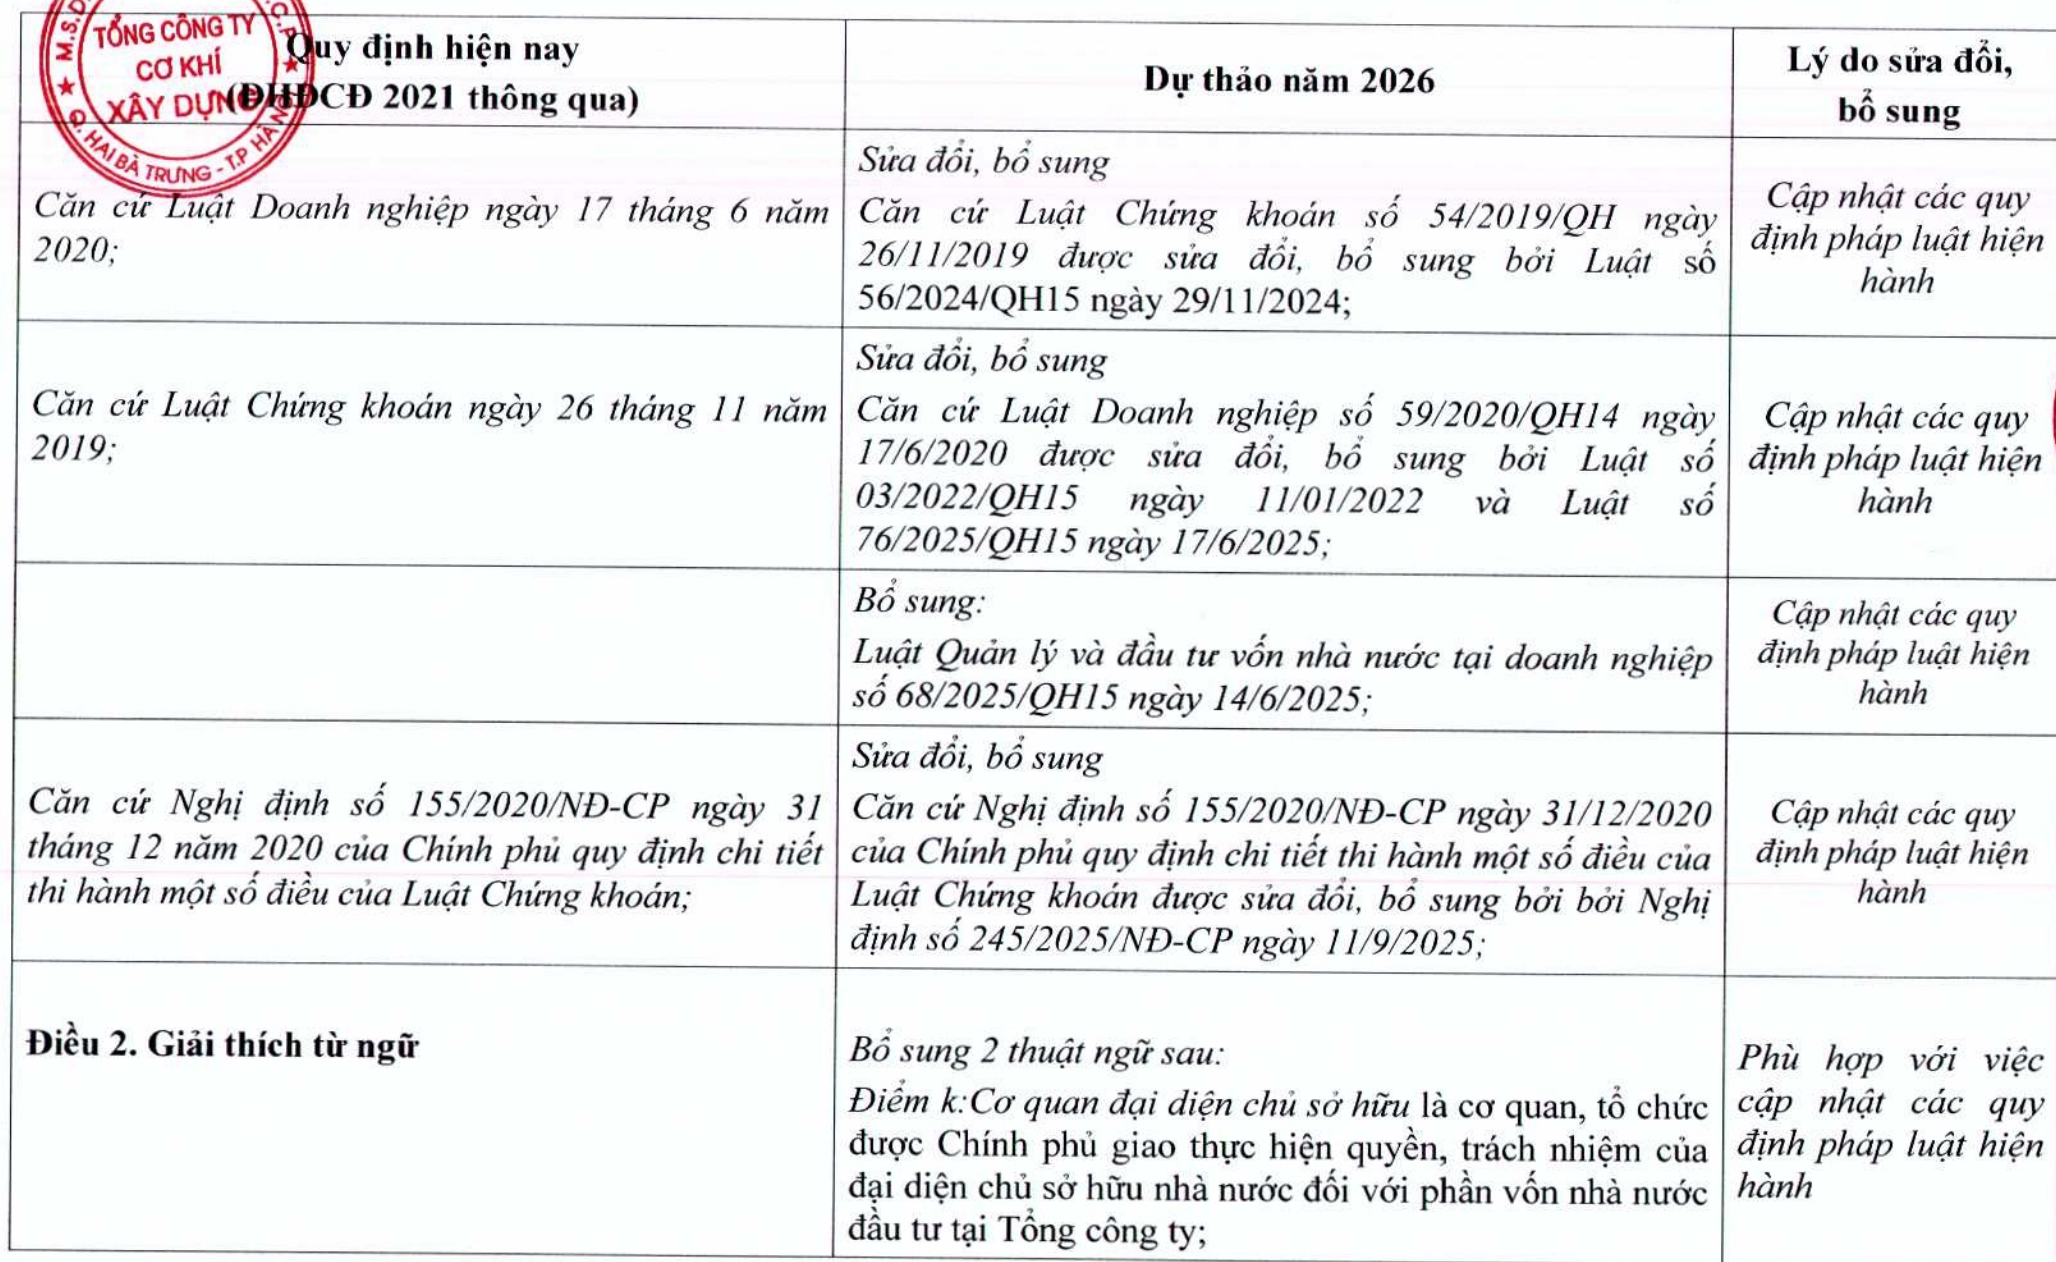 M.S.D
C.P
TỔNG CÔNG TY
CƠ KHÍ
XÂY DỰNG
Q. HAI BÀ TRƯNG - T.P HÀ N
Quy định hiện nay
(ĐHĐCĐ 2021 thông qua)
Dự thảo năm 2026
Lý do sửa đổi,
bổ sung
Căn cứ Luật Doanh nghiệp ngày 17 tháng 6 năm
2020;
Sửa đổi, bổ sung
Căn cứ Luật Chứng khoán số 54/2019/QH ngày
26/11/2019 được sửa đổi, bổ sung bởi Luật số
56/2024/QH15 ngày 29/11/2024;
Cập nhật các quy
định pháp luật hiện
hành
Căn cứ Luật Chứng khoán ngày 26 tháng 11 năm
2019;
Sửa đổi, bổ sung
Căn cứ Luật Doanh nghiệp số 59/2020/QH14 ngày
17/6/2020 được sửa đổi, bổ sung bởi Luật số
03/2022/QH15 ngày 11/01/2022 và Luật số
76/2025/QH15 ngày 17/6/2025;
Cập nhật các quy
định pháp luật hiện
hành
Bổ sung:
Luật Quản lý và đầu tư vốn nhà nước tại doanh nghiệp
số 68/2025/QH15 ngày 14/6/2025;
Cập nhật các quy
định pháp luật hiện
hành
Căn cứ Nghị định số 155/2020/NĐ-CP ngày 31
tháng 12 năm 2020 của Chính phủ quy định chi tiết
thi hành một số điều của Luật Chứng khoán;
Sửa đổi, bổ sung
Căn cứ Nghị định số 155/2020/NĐ-CP ngày 31/12/2020
của Chính phủ quy định chi tiết thi hành một số điều của
Luật Chứng khoán được sửa đổi, bổ sung bởi bởi Nghị
định số 245/2025/NĐ-CP ngày 11/9/2025;
Cập nhật các quy
định pháp luật hiện
hành
Điều 2. Giải thích từ ngữ
Bổ sung 2 thuật ngữ sau:
Điểm k:Cơ quan đại diện chủ sở hữu là cơ quan, tổ chức
được Chính phủ giao thực hiện quyền, trách nhiệm của
đại diện chủ sở hữu nhà nước đối với phần vốn nhà nước
đầu tư tại Tổng công ty;
Phù hợp với việc
cập nhật các quy
định pháp luật hiện
hành